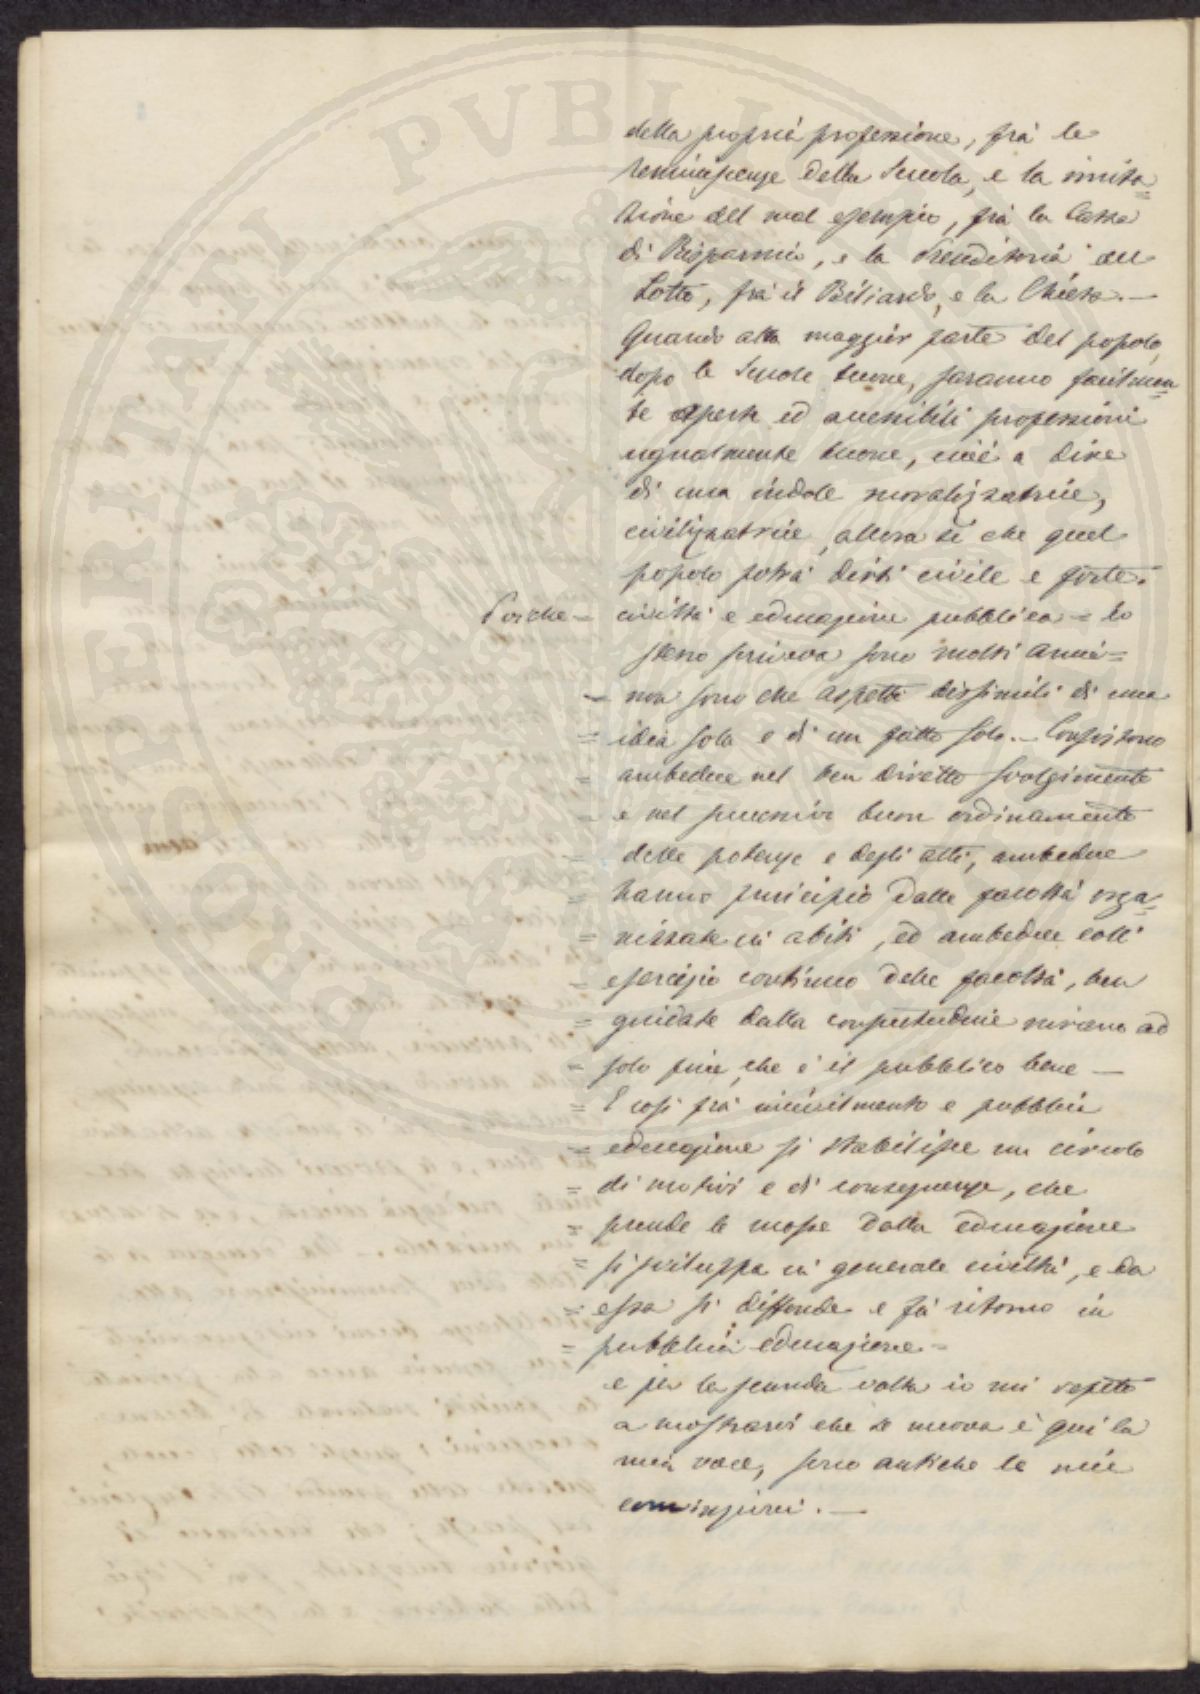 della propria professione, frà le
reminiscenze della Scuola, e la imita=
zione del mal esempio, frà la Cassa
di Risparmio, e la Prenditoria del
Lotto, frà il Biliardo, e la Chiesa. —
Quando alla maggior parte del popolo,
dopo le Scuole buone, saranno facilmen=
te aperte ed accessibili professioni
ugualmente buone, cioè a dire
di una indole moralizzatrice,
civilizzatrice, allora sì che quel
popolo potrà dirsi civile e forte.
Poiche = civiltà e educazione pubblica = lo
stesso scriveva sono molti anni =
= non sono che aspetti dissimili di una
= idea sola e di un fatto solo. — Consistono
= ambedue nel ben diretto svolgimento
= e nel buon ordinamento
= delle potenze e degli atti, ambedue
= hanno principio dalle facoltà orga=
= nizzate in abiti, ed ambedue coll'
= esercizio continuo delle facoltà, ben
= guidate dalla consuetudine mirano ad
= solo fine, che è il pubblico bene —
= E così frà incivilmento e pubblica
= educazione si stabilisce un circolo
= di motivi e di conseguenze, che
= prende le mosse dalla educazione
= si sviluppa in generale civiltà, e da
= essa si diffonde e fà ritorno in
= pubblica educazione =
e per la seconda volta io mi repeto
a mostrarvi che se nuova è qui la
mia voce, sono antiche le mie
convinzioni. —